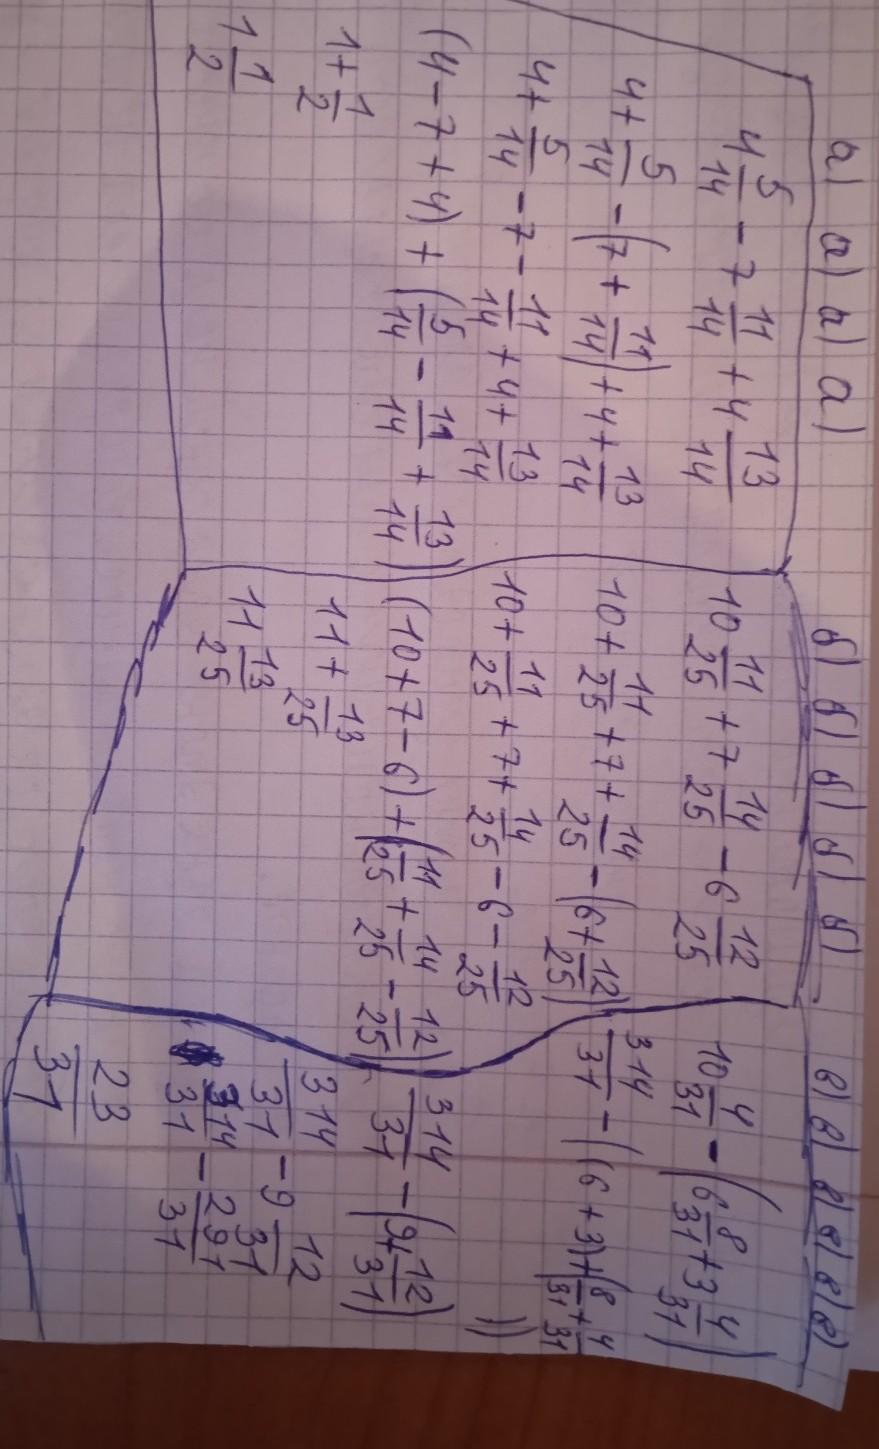 а) а) а) а)
4 5/14 - 7 11/14 + 4 13/14
4 + 5/14 - (7 + 11/14) + 4 + 13/14
4 + 5/14 - 7 - 11/14 + 4 + 13/14
(4 - 7 + 4) + (5/14 - 11/14 + 13/14)
1 + 1/2
1 1/2
б) б) б) б) б)
10 11/25 + 7 14/25 - 6 12/25
10 + 11/25 + 7 + 14/25 - (6 + 12/25)
10 + 11/25 + 7 + 14/25 - 6 - 12/25
(10 + 7 - 6) + (11/25 + 14/25 - 12/25)
11 + 13/25
11 13/25
в) в) в) в) в) в)
10 4/31 - (6 8/31 + 3 4/31)
314/31 - ((6 + 3) + (8/31 + 4/31))
314/31 - (9 + 12/31)
314/31 - 9 12/31
314/31 - 291/31
23/31